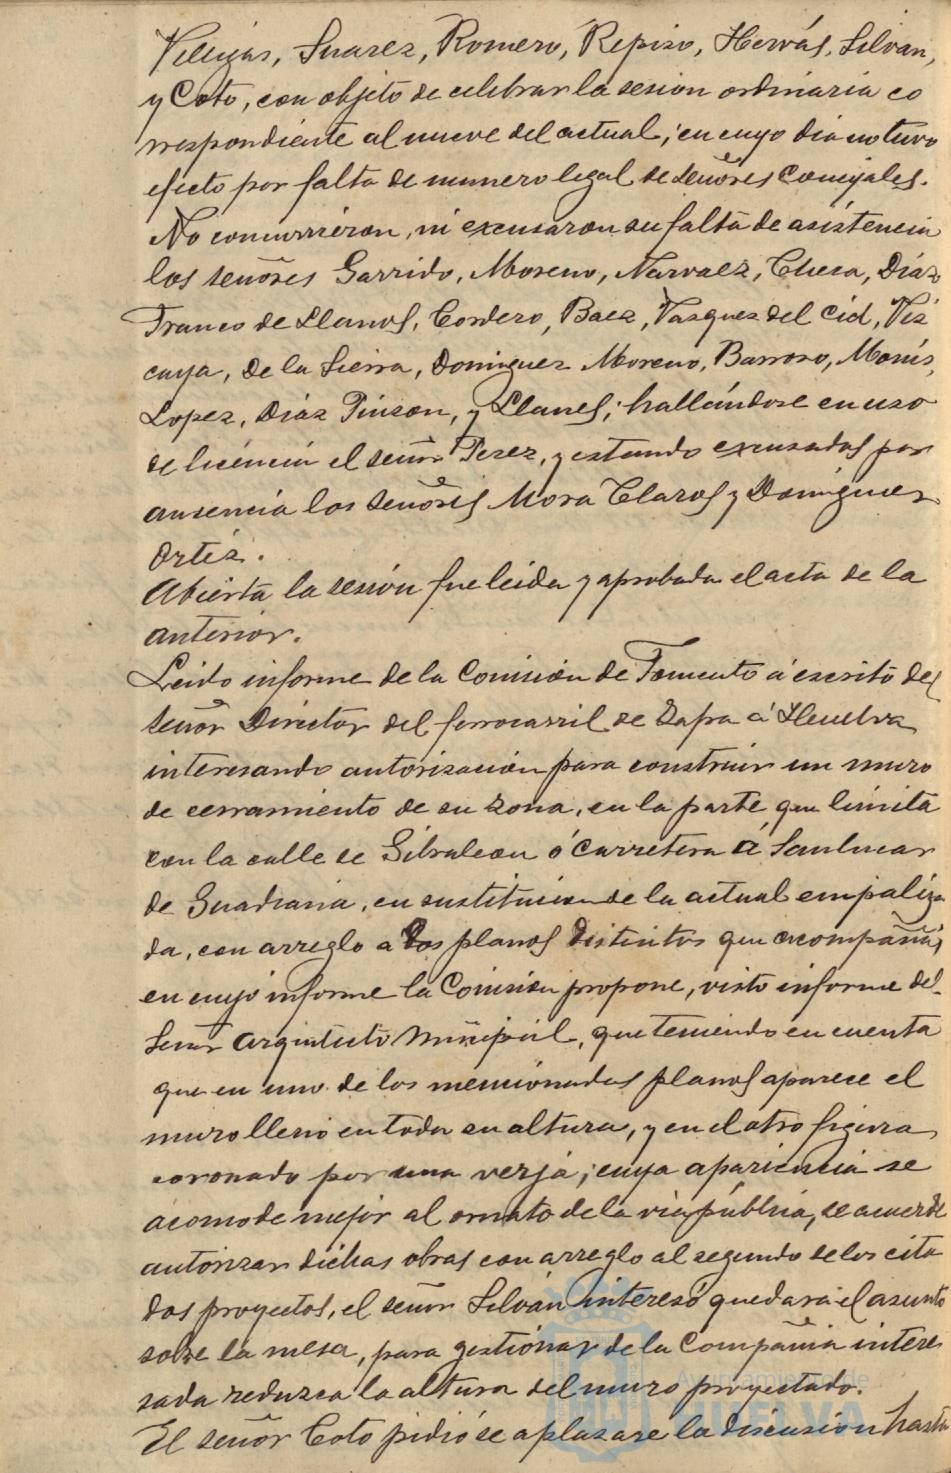 Villegas, Suarez, Romero, Repiso, Hervás, Silvan,
y Coto, con objeto de celebrar la sesion ordinaria co
rrespondiente al nueve del actual; en cuyo dia no tuvo
efecto por falta de numero legal de señores Concejales.
No concurrieron, ni excusaron su falta de asistencia
los señores Garrido, Moreno, Narvaez, Checa, Díaz
Franco de Llanos, Cordero, Baez, Vazquez del Cid, Viz
caya, De la Sierra, Dominguez Moreno, Barroso,
Lopez, Díaz Pinzon, y Llanes; hallándose en uso
de licencia el señor Perez, y estando excusados por
ausencia los señores Mora Claros y Dominguez
Ortiz.
Abierta la sesión fue leida y aprobada el acta de la
anterior.
Leido informe de la Comisión de Fomento á escrito del
señor Director del ferrocarril de Zafra á Huelva
interesando autorización para construir un muro
de cerramiento de su zona, en la parte que limita
con la calle de Gibraleon ó Carretera á Sanlucar
de Guadiana, en sustitucion de la actual empaliza
da, con arreglo a dos planos distintos que acompaña;
en cuyo informe la Comision propone, visto informe del
Señor Arquitecto Municipal, que teniendo en cuenta
que en uno de los mencionados planos aparece el
muro lleno en toda su altura, y en el otro figura
coronado por una verja; cuya apariencia se
acomode mejor al ornato de la via pública, se acuerde
autorizar dichas obras con arreglo al segundo de los cita
dos proyectos, el señor Silván interesó quedara el asunto
sobre la mesa, para gestionar de la Compañia intere
sada reduzca la altura del muro proyectado.
El señor Coto pidió se aplazase la discusion hasta
Ayuntamiento de
HUELVA